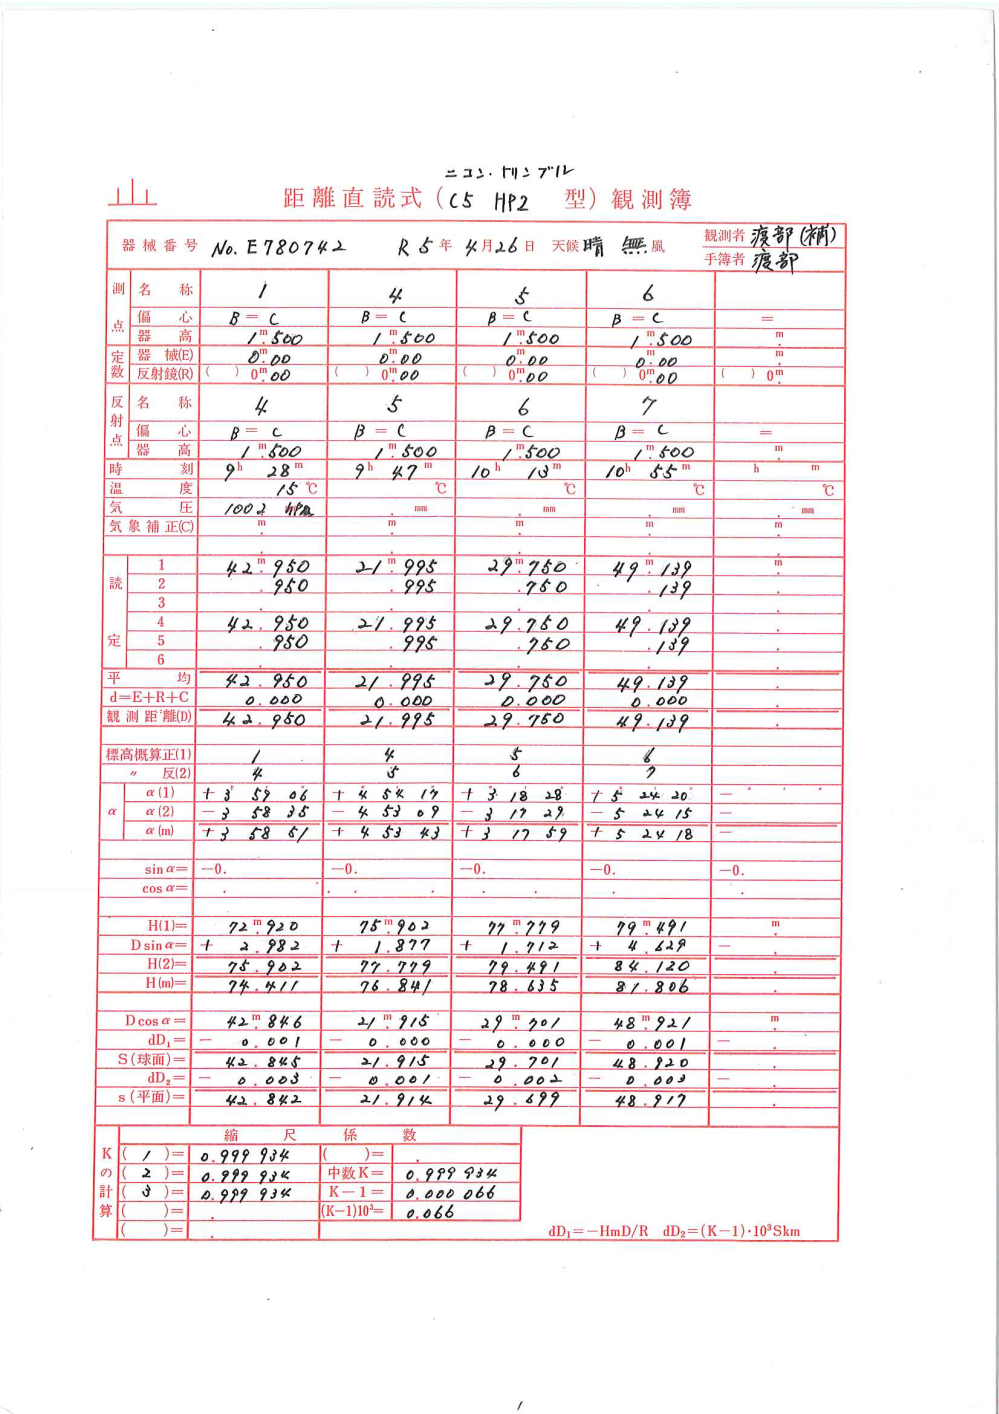 ニコン・トリンブル
距離直読式(C5 HP2 型)観測簿
器械番号 No. E780742 R 5年 4月26日 天候 晴 無風 観測者 渡部(補)
手簿者 渡部
測点 名称 1 4 5 6
偏心 B = C B = C B = C B = C =
器高 1m.500 1m.500 1m.500 1m.500 m.
定数 器械(E) 0m.00 0m.00 0m.00 0m.00 m.
反射鏡(R) ( ) 0m.00 ( ) 0m.00 ( ) 0m.00 ( ) 0m.00 ( ) 0m.
反射点 名称 4 5 6 7
偏心 B = C B = C B = C B = C =
器高 1m.500 1m.500 1m.500 1m.500 m.
時刻 9h 28m 9h 47m 10h 13m 10h 55m h m
温度 15℃ ℃ ℃ ℃ ℃
気圧 1002 hPa . mm . mm . mm . mm
気象補正(C) m. m. m. m. m.
読定 1 42m.950 21m.995 29m.750 49m.139 m.
2 .950 .995 .750 .139 .
3 . . . . .
4 42.950 21.995 29.750 49.139 .
5 .950 .995 .750 .139 .
6 . . . . .
平均 42.950 21.995 29.750 49.139 .
d=E+R+C 0.000 0.000 0.000 0.000
観測距離(D) 42.950 21.995 29.750 49.139 .
標高概算正(1) 1 4 5 6
〃 反(2) 4 5 6 7
α α(1) +3 59 06 +4 54 17 +3 18 28 +5 24 20 − ° ′ ″
α(2) −3 58 35 −4 53 09 −3 17 29 −5 24 15 −
α(m) +3 58 51 +4 53 43 +3 17 59 +5 24 18 −
sin α= −0. −0. −0. −0. −0.
cos α= . . . . .
H(1)= 72m.920 75m.902 77m.779 79m.491 m.
D sin α= + 2.982 + 1.877 + 1.712 + 4.629 − .
H(2)= 75.902 77.779 79.491 84.120 .
H(m)= 74.411 76.841 78.635 81.806 .
D cos α= 42m.846 21m.915 29m.701 48m.921 m.
dD₁= − 0.001 − 0.000 − 0.000 − 0.001 − .
S(球面)= 42.845 21.915 29.701 48.920 .
dD₂= − 0.003 − 0.001 − 0.002 − 0.003 − .
s(平面)= 42.842 21.914 29.699 48.917 .
縮尺係数
Kの計算 ( 1 )= 0.999 934 ( )= .
( 2 )= 0.999 934 中数K= 0.999 934
( 3 )= 0.999 934 K−1= 0.000 066
( )= . (K−1)10³= 0.066
( )= .
dD₁=−HmD/R dD₂=(K−1)・10³Skm
1